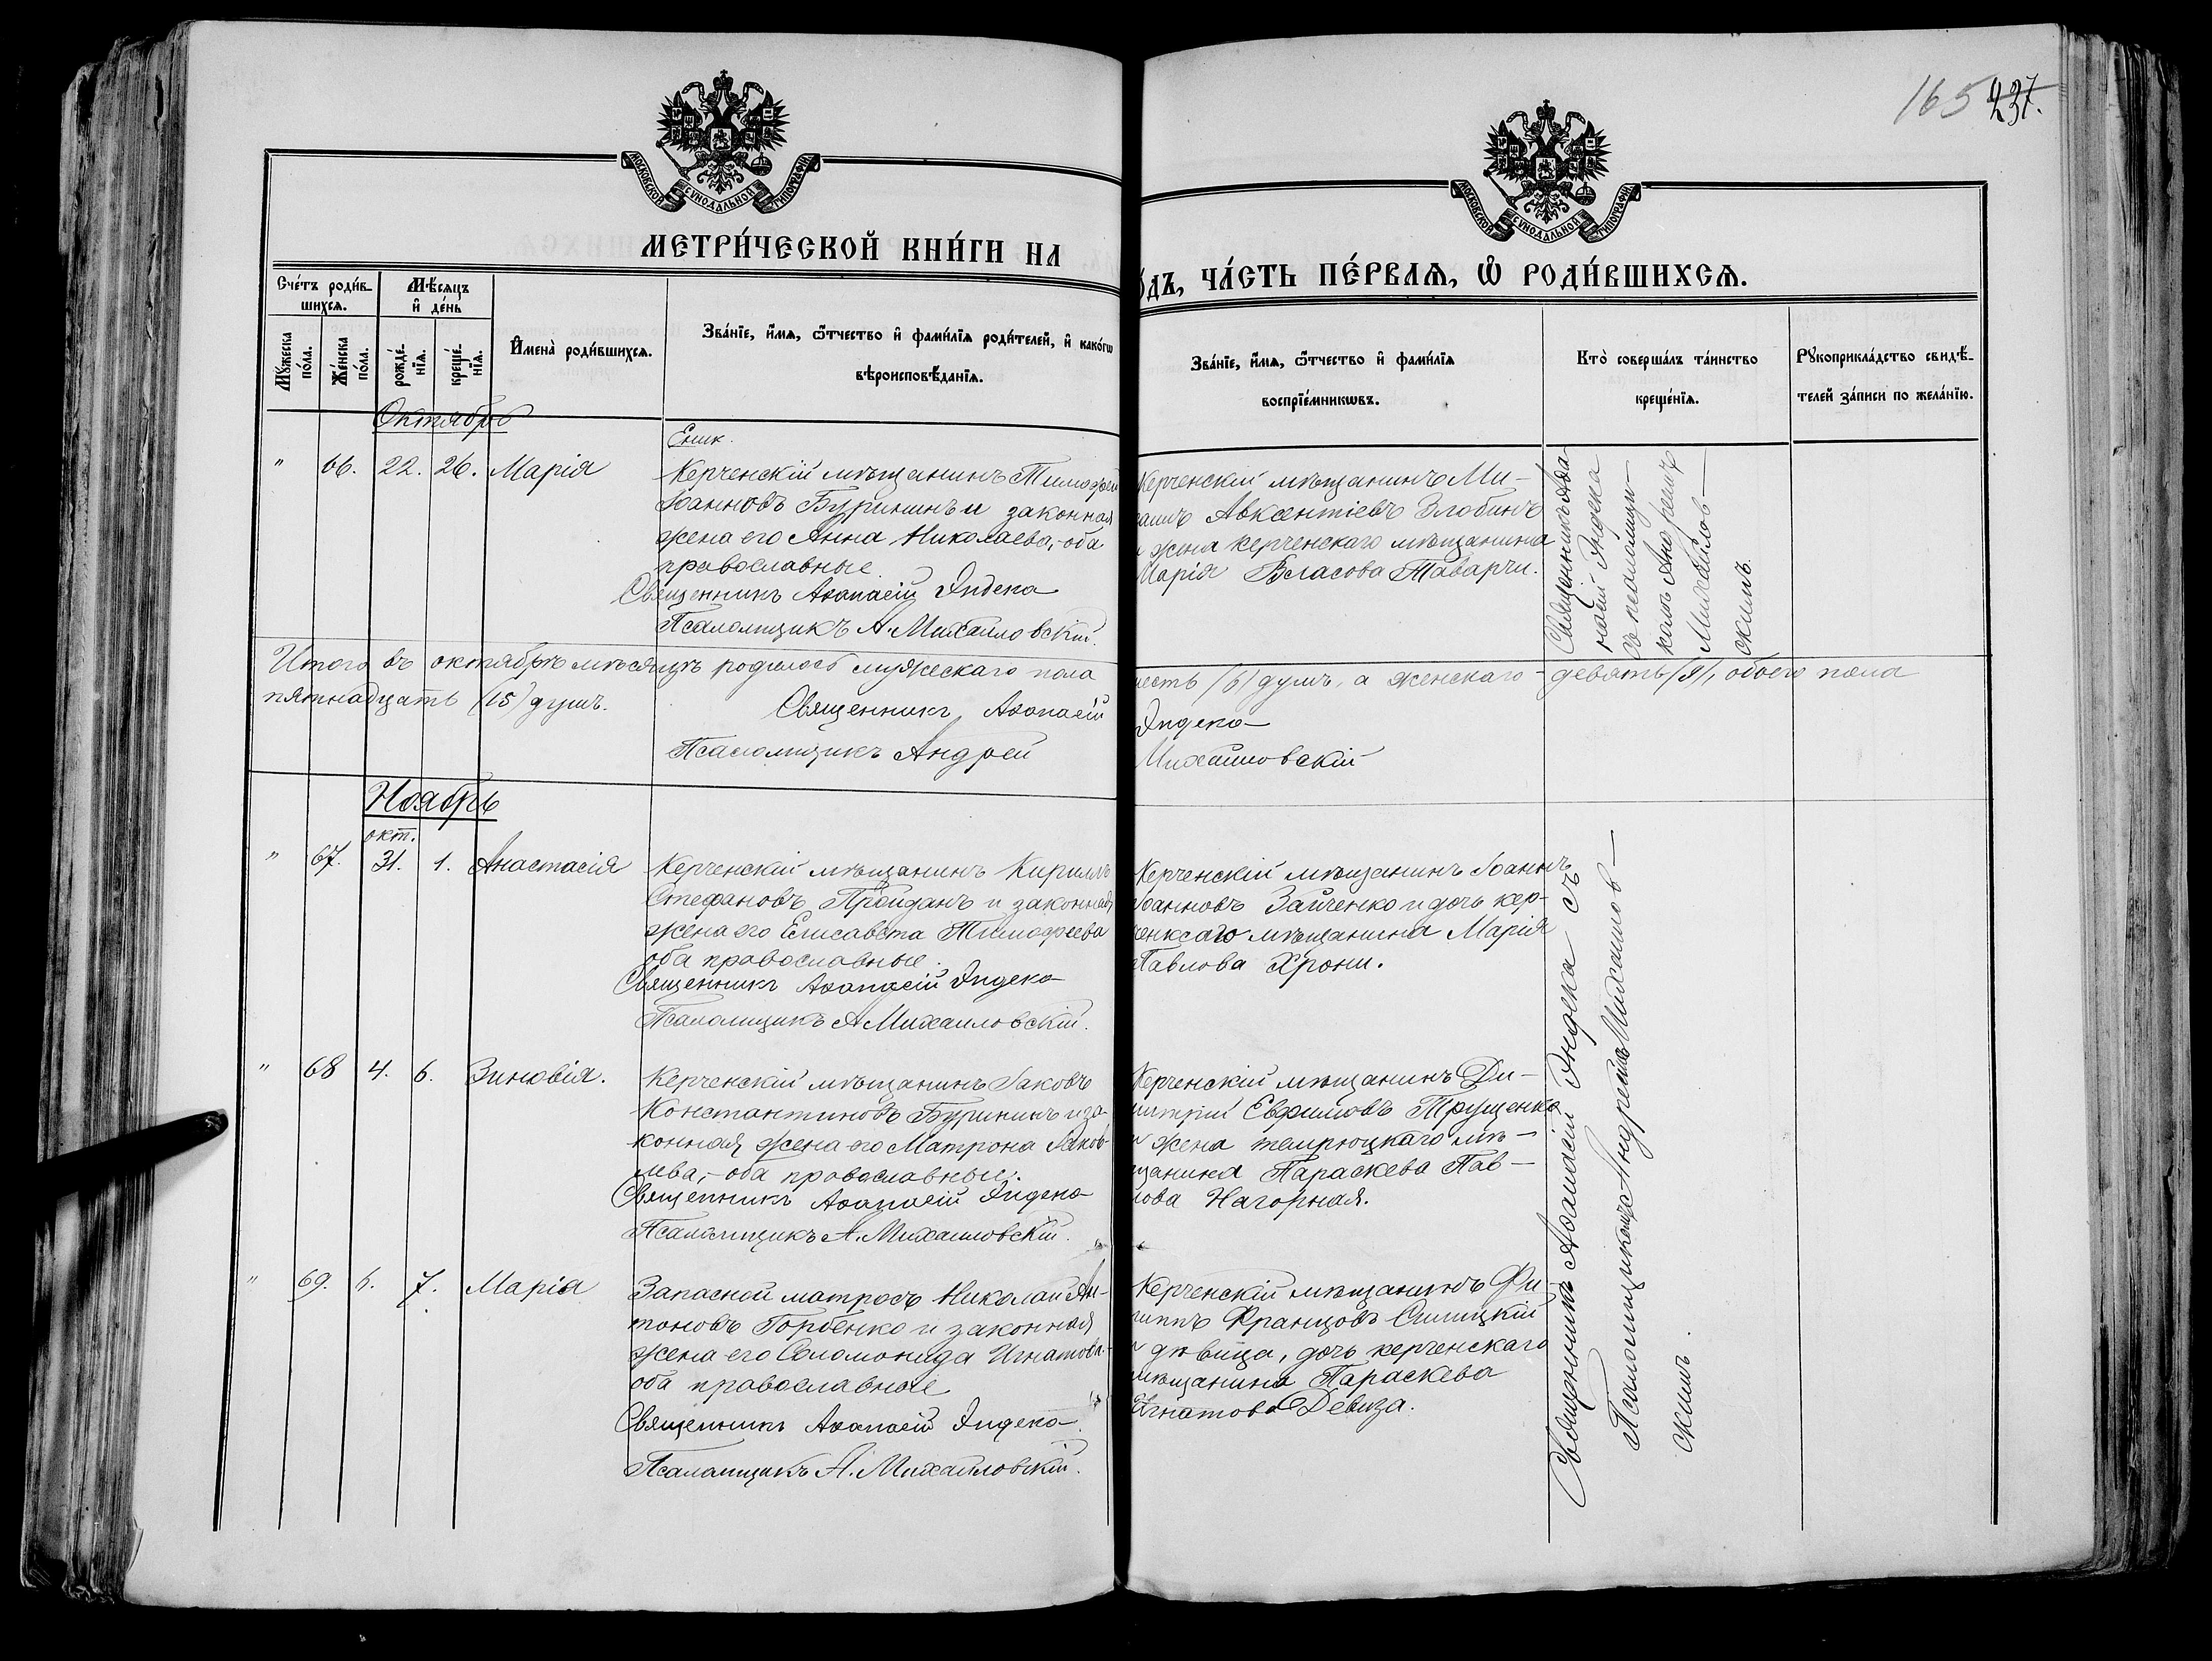 165 237.
МОСКОВСКОЙ СѴНОДАЛЬНОЙ ТИПОГРАФІИ
МОСКОВСКОЙ СѴНОДАЛЬНОЙ ТИПОГРАФІИ
МЕТРИ́ЧЕСКОЙ КНИ́ГИ НА
ОДЪ, ЧА́СТЬ ПЕ́РВАѦ, Ѡ РОДИ́ВШИХСѦ.
Сче́тъ роди́в-
шихсѧ.
Мѣ́сѧцъ
и де́нь
Мꙋжеска
по́ла.
Же́нска
по́ла.
рожде́-
нїѧ.
креще́-
нїѧ.
Имена̀ роди́вшихсѧ.
Зва́нїе, и́мѧ, ѻ́тчество и фами́лїѧ роди́телей, и како́гѡ
вѣроисповѣ́данїѧ.
Зва́нїе, и́мѧ, ѻ́тчество и фами́лїѧ
воспрїе́мникѡвъ.
Кто̀ соверша́лъ та́инство
креще́нїѧ.
Рꙋкоприкла́дство свидѣ́-
телей за́писи по жела́нїю.
Октябрь
" 66. 22. 26. Марія
Еник.
Керченскій мѣщанинъ Тимофей
Іоанновъ Бурининъ и законная
жена его Анна Николаева, - оба
православные.
Священникъ Аѳанасій Индека
Псаломщикъ А. Михайловскій.
Керченскій мѣщанинъ Ми-
хаилъ Авксентіевъ Злобинъ
и жена керченскаго мѣщанина
Марія Власова Таварчи.
Священникъ Аѳа-
насій Индека
съ псаломщи-
комъ Андреемъ
Михайлов-
скимъ.
Итого въ октябрѣ мѣсяцѣ родилось мужескаго пола
шесть /6/ душъ, а женскаго - девять /9/, обоего пола
пятнадцать /15/ душъ.
Священникъ Аѳанасій
Индека
Псаломщикъ Андрей
Михайловскій
Ноябрь
окт.
" 67. 31. 1. Анастасія
Керченскій мѣщанинъ Кириллъ
Стефановъ Пройданъ и законная
жена его Елисавета Тимофеева
оба православные.
Священникъ Аѳанасій Индека
Псаломщикъ А Михайловскій.
Керченскій мѣщанинъ Іоаннъ
Іоанновъ Зайченко и дочь кер-
ченксаго мѣщанина Марія
Павлова Хрони.
" 68 4. 6. Зиновія.
Керченскій мѣщанинъ Іаковъ
Константиновъ Бурининъ и за-
конная жена его Матрона Іаков-
лева, - оба православные.
Священникъ Аѳанасій Индека
Псаломщикъ А. Михайловскій.
Керченскій мѣщанинъ Ди-
митрій Евфимовъ Трущенко
и жена темрюцкаго мѣ-
щанина Параскева Пав-
лова Нагорная.
" 69. 6. 7. Марія
Запасной матросъ Николай Ан-
тоновъ Горбенко и законная
жена его Соломонида Игнатова
оба православные
Священникъ Аѳанасій Индека
Псаломщикъ А. Михайловскій.
Керченскій мѣщанинъ Фи-
липпъ Францовъ Силицкій
и дѣвица, дочь керченскаго
мѣщанина Параскева
Игнатова Девиза.
Священникъ Аѳанасій Индека съ
Псаломщикомъ Андреемъ Михайлов-
скимъ.